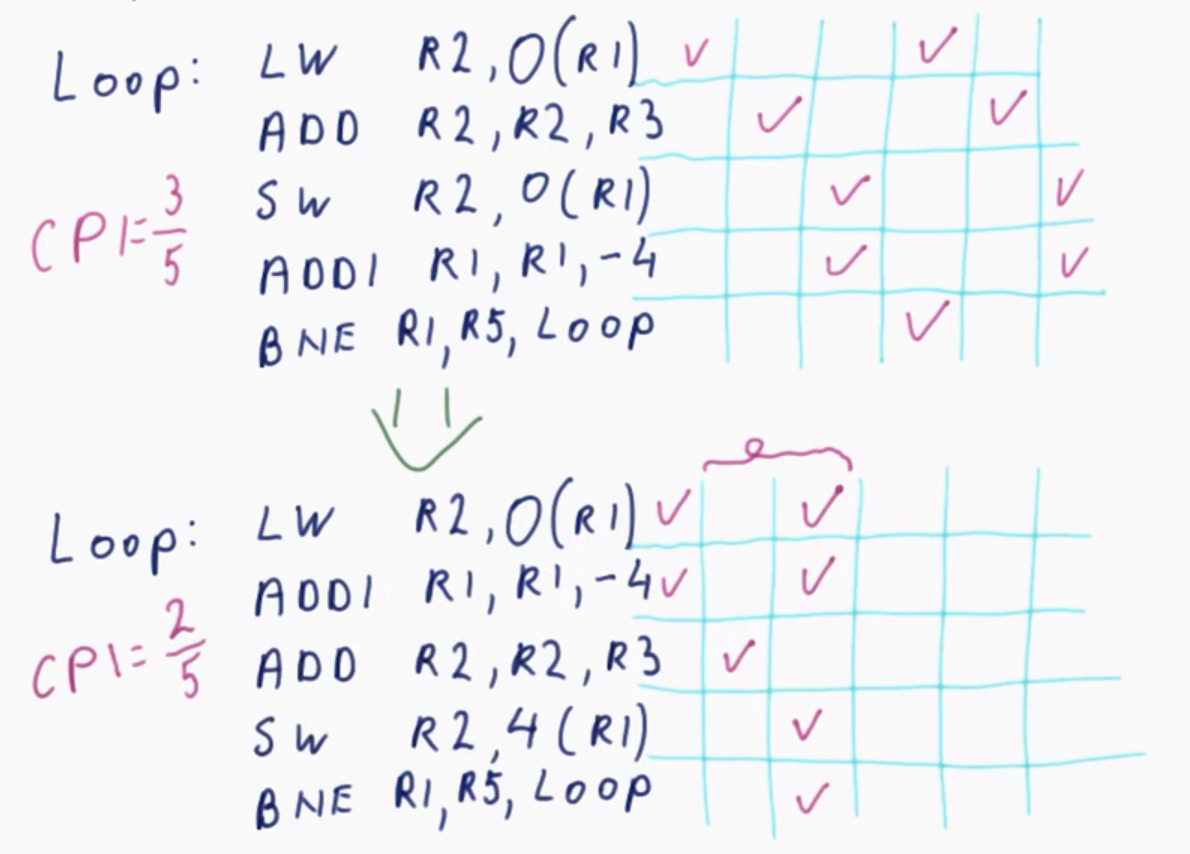 Loop: LW R2,0(R1) ✓ ✓
ADD R2,R2,R3 ✓ ✓
SW R2,0(R1) ✓ ✓
CPI=3/5
ADDI R1,R1,-4 ✓ ✓
BNE R1,R5,Loop ✓
Loop: LW R2,0(R1) ✓ ✓
ADDI R1,R1,-4 ✓ ✓
CPI=2/5
ADD R2,R2,R3 ✓
SW R2,4(R1) ✓
BNE R1,R5,Loop ✓